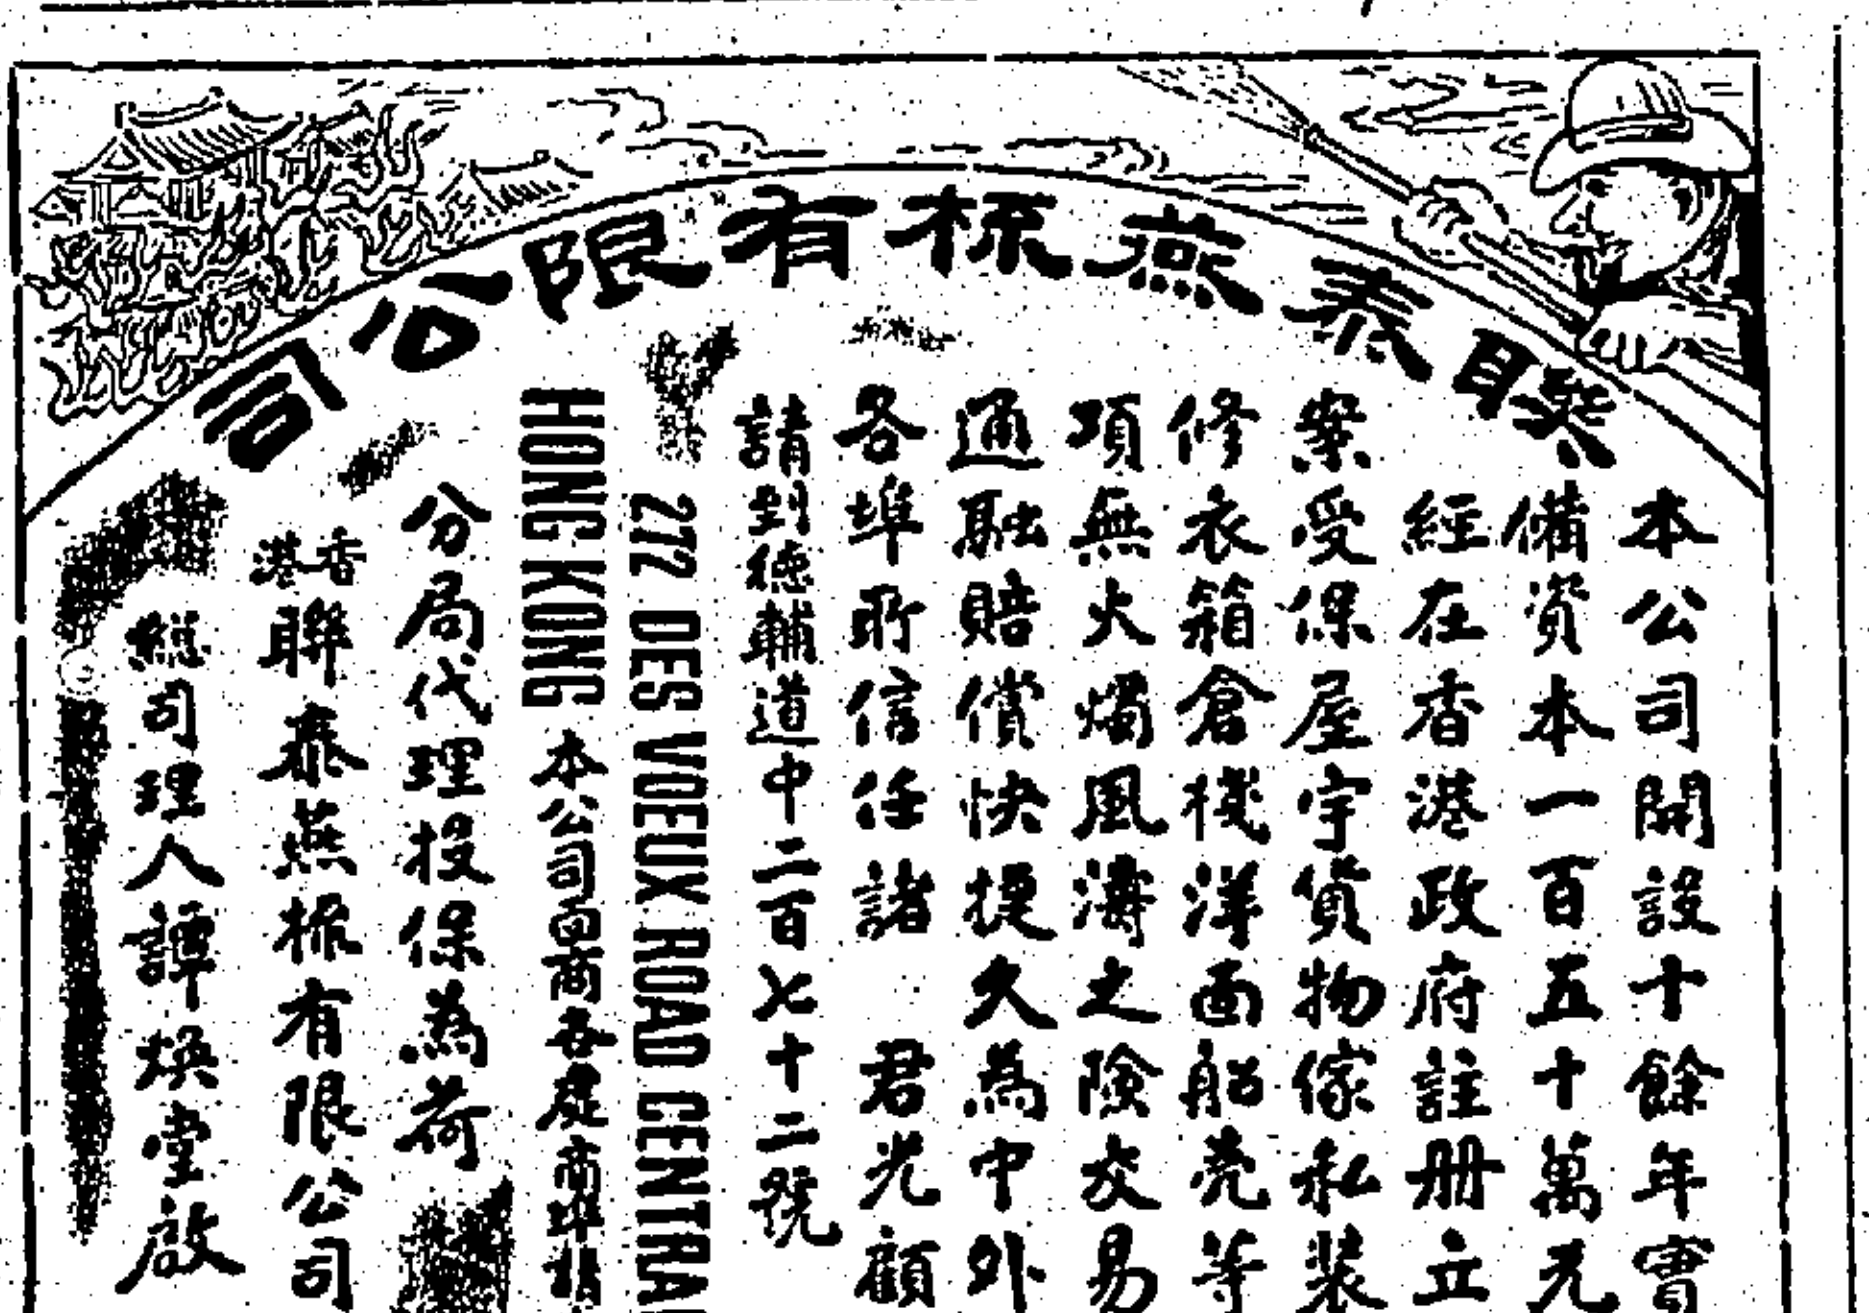 聯泰燕梳有限公司
本公司開設十餘年實
備資本一百五十萬元
經在香港政府註册立
案受保屋宇貨物傢私裝
修衣箱倉棧洋面船壳等
項無火燭風濤之險交易
通融賠償快捷久為中外
各埠所信任諸 君光顧
請到德輔道中二百七十二號
272 DES VOEUX ROAD CENTRAL
HONG KONG 本公司 商各處商埠皆
分局代理投保為荷
香港聯泰燕梳有限公司
總司理人譚煥堂啟